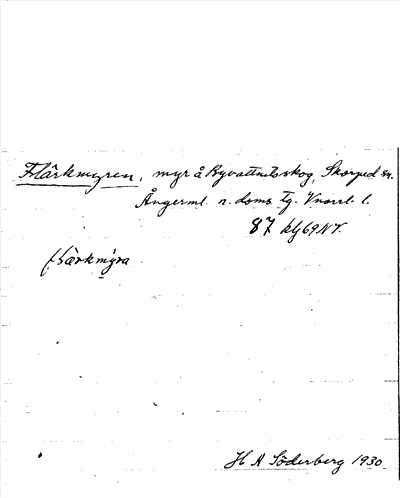 Flärkmyren, myr å Byvattnets skog, Skorped sn.
Ångerml. n. doms. tg. Vnorrl. l.
87
flärkmýra.
H A Söderberg 1930